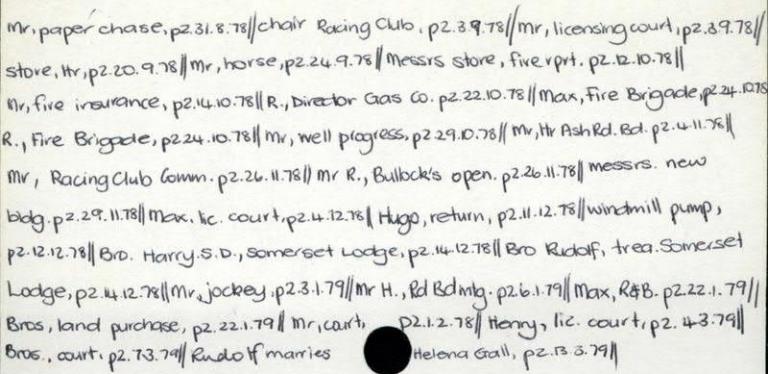 Mr, paper chase, p2.31.8.78//chair Racing Club. p2.3.9.78//mr, licensing court, p2.3.9.78//
store, Hr, p2.20.9.78//Mr, horse, p2.24.9.78//Messrs store, fire rprt. p2.12.10.78//
Mr, fire insurance, p2.14.10.78//R., Director Gas Co. p2.22.10.78//Max, Fire Brigade, p2.24.10.78
R., Fire Brigade, p2.24.10.78//Mr, well progress, p2.29.10.78//Mr, Hr Ash Rd. Bd. p2.4.11.78//
Mr, Racing Club Comm. p2.26.11.78//Mr R., Bullock's open. p2.26.11.78//messrs. new
bldg. p2.29.11.78//Max. lic. court, p2.4.12.78//Hugo, return, p2.11.12.78//windmill pump,
p2.12.12.78//Bro. Harry. S.D., Somerset Lodge, p2.14.12.78//Bro Rudolf, trea. Somerset
Lodge, p2.14.12.78//Mr, jockey, p2.3.1.79//Mr H., Rd Bd mtg. p2.6.1.79//Max, R&B. p2.22.1.79//
Bros, land purchase, p2.22.1.79//Mr, court, p2.1.2.78//Henry, lic. court, p2.4.3.79//
Bros., court, p2.7.3.79//Rudolf marries Helena Gall, p2.13.3.79//